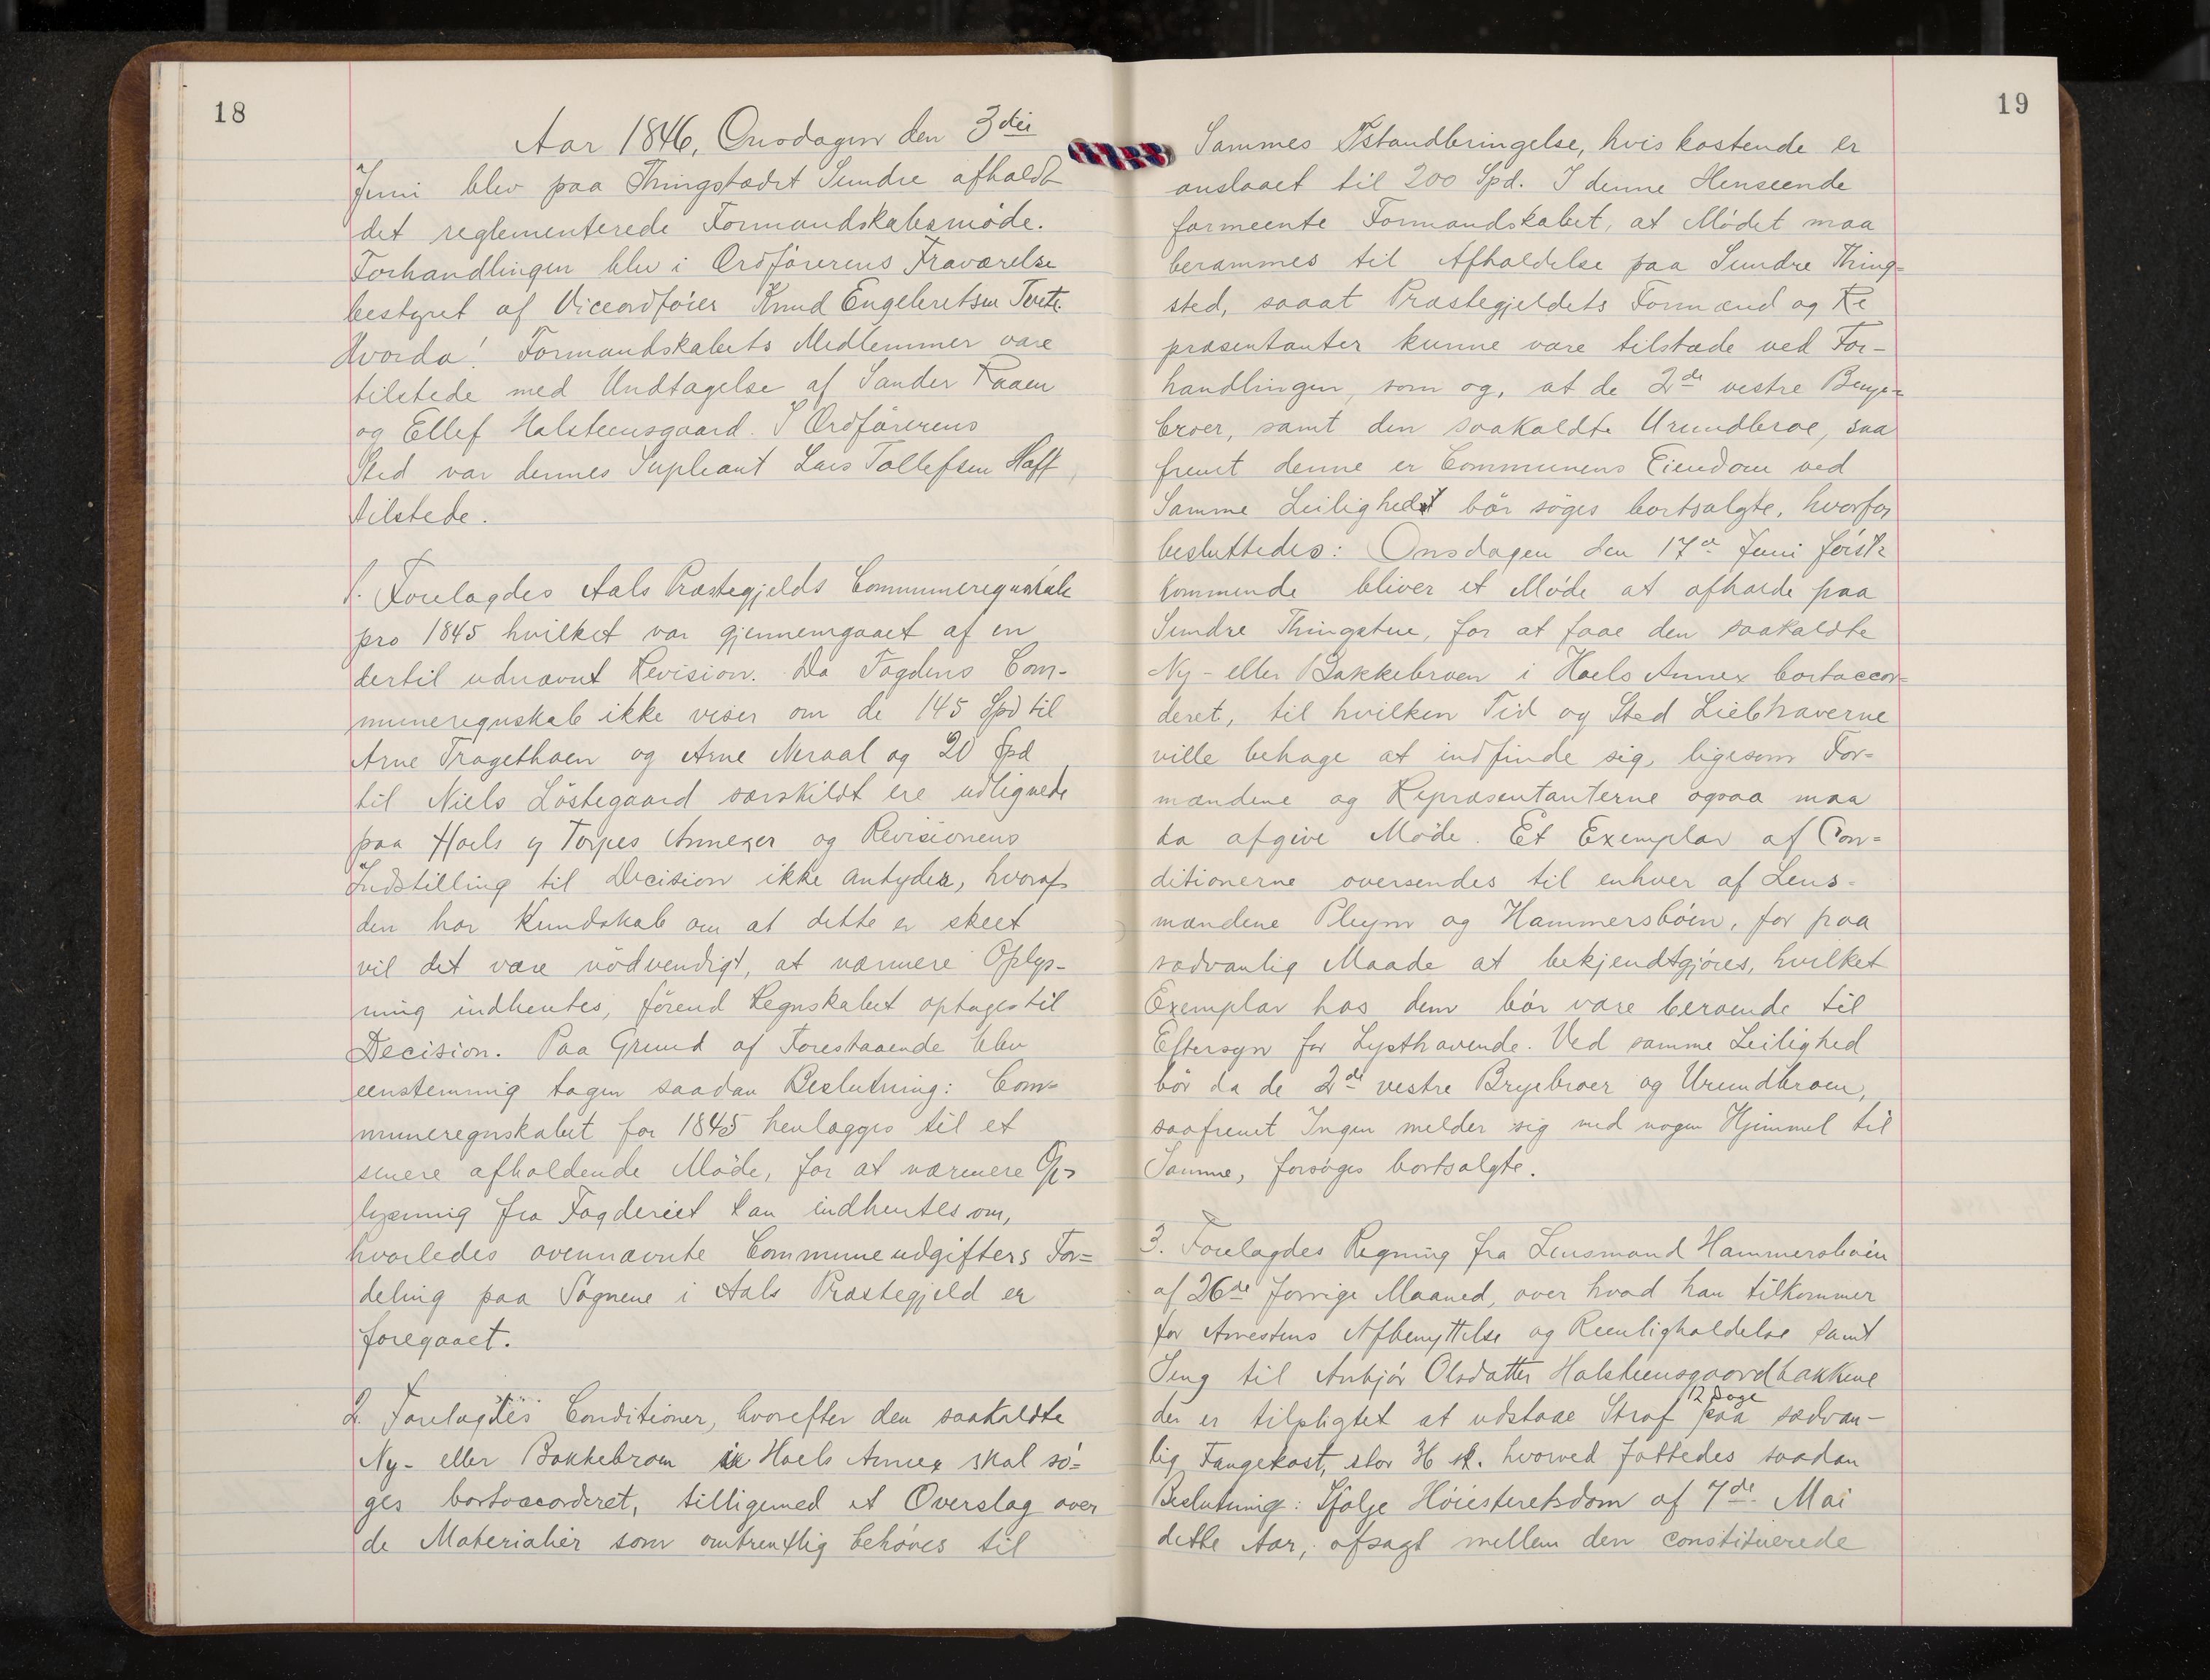 18
Aar 1846, Onsdagen den 3die
Juni blev paa Thingstædet Sundre afholdt
det reglementerede Formandskabsmøde.
Forhandlingen blev i Ordførerens Fraværelse
bestyret af Viceordfører Knud Engebretsen Tveit.
Hvorda! Formandskabets Medlemmer vare
tilstede med Undtagelse af Sander Raaen
og Ellef Halsteensgaard. I Ordførerens
Sted var dennes Supleant Lars Tollefsen Haft,
tilstede.
1. Forelagdes Aals Præstegjelds Communeregnskab
pro 1845 hvilket var gjennemgaaet af en
dertil udnævnt Revision. Da Fogdens Com-
muneregnskab ikke viser om de 145 Spd til
Arne Tragethoen og Arne Neraal og 20 Spd
til Niels Löstegaard særskildt ere udlignede
paa Hoels og Torpes Annexer og Revisionens
Indstilling til Decision ikke antyder, hvoraf
den har Kundskab om at dette er skeet
vil det være nödvendigt, at nærmere Oplys-
ning indhentes, förend Regnskabet optages til
Decision. Paa Grund af Forestaaende blev
eenstemmig tagen saadan Beslutning: Com-
muneregnskabet for 1845 henlægges til et
senere afholdende Møde, for at nærmere Op-
lysning fra Fogderiet kan indhentes om,
hvorledes ovennævnte Communeudgifters For=
deling paa Sognene i Aals Præstegjeld er
foregaaet.
2. Forelagdes Conditioner, hvorefter den saakaldte
Ny- eller Bakkebroen i Hoels Annex skal sö-
ges bortaccorderet, tilligemed et Overslag over
de Materialier som omtrentlig behöves til
19
Sammes Istandbringelse, hvis kostende er
anslaaet til 200 Spd. I denne Henseende
formeente Formandskabet, at Mödet maa
berammes til Afholdelse paa Sundre Thing=
sted, saaat Præstegjeldets Formænd og Re
præsentanter kunne være tilstæde ved For-
handlingen, som og, at de 2de vestre Brye=
broer, samt den saakaldte Urundbroe, saa
fremt denne er Communens Eiendom ved
Samme Leilighed bör söges bortsalgte, hvorfor
besluttedes: Onsdagen den 17de Juni först
kommende bliver et Møde at afholde paa
Sundre Thingstue, for at faae den saakaldte
Ny- eller Bakkebroen i Hoels Annex bortaccor=
deret, til hvilken Tid og Sted Liebhaverne
ville behage at indfinde sig, ligesom For=
mændene og Repræsentanterne ogsaa maa
da afgive Møde. Et Exemplar af Con=
ditionerne oversendes til enhver af Lens=
mændene Pleym og Hammersböen, for paa
sædvanlig Maade at bekjendtgjöres, hvilket
Exemplar hos dem bör være beroende til
Eftersyn for Lysthavende. Ved samme Leilighed
bör da de 2de vestre Bryebroer og Urundbroen,
saafremt Ingen melder sig med nogen Hjemmel til
Samme, forsöges bortsalgte.
3. Forelagdes Regning fra Lensmand Hammersböen
af 26de forrige Maaned, over hvad han tilkommer
for Arrestens Afbenyttelse og Reenligholdelse samt
Seng til Anbjör Olsdatter Halsteensgaardbakkene
der er tilpligtet at udstaae Straf 12 Dage paa sædvan-
lig Fangekost, stor 36 sk. hvorved fattedes saadan
Beslutning: Ifölge Höiesteretsdom af 7de Mai
dette Aar, afsagt mellem den constituerede